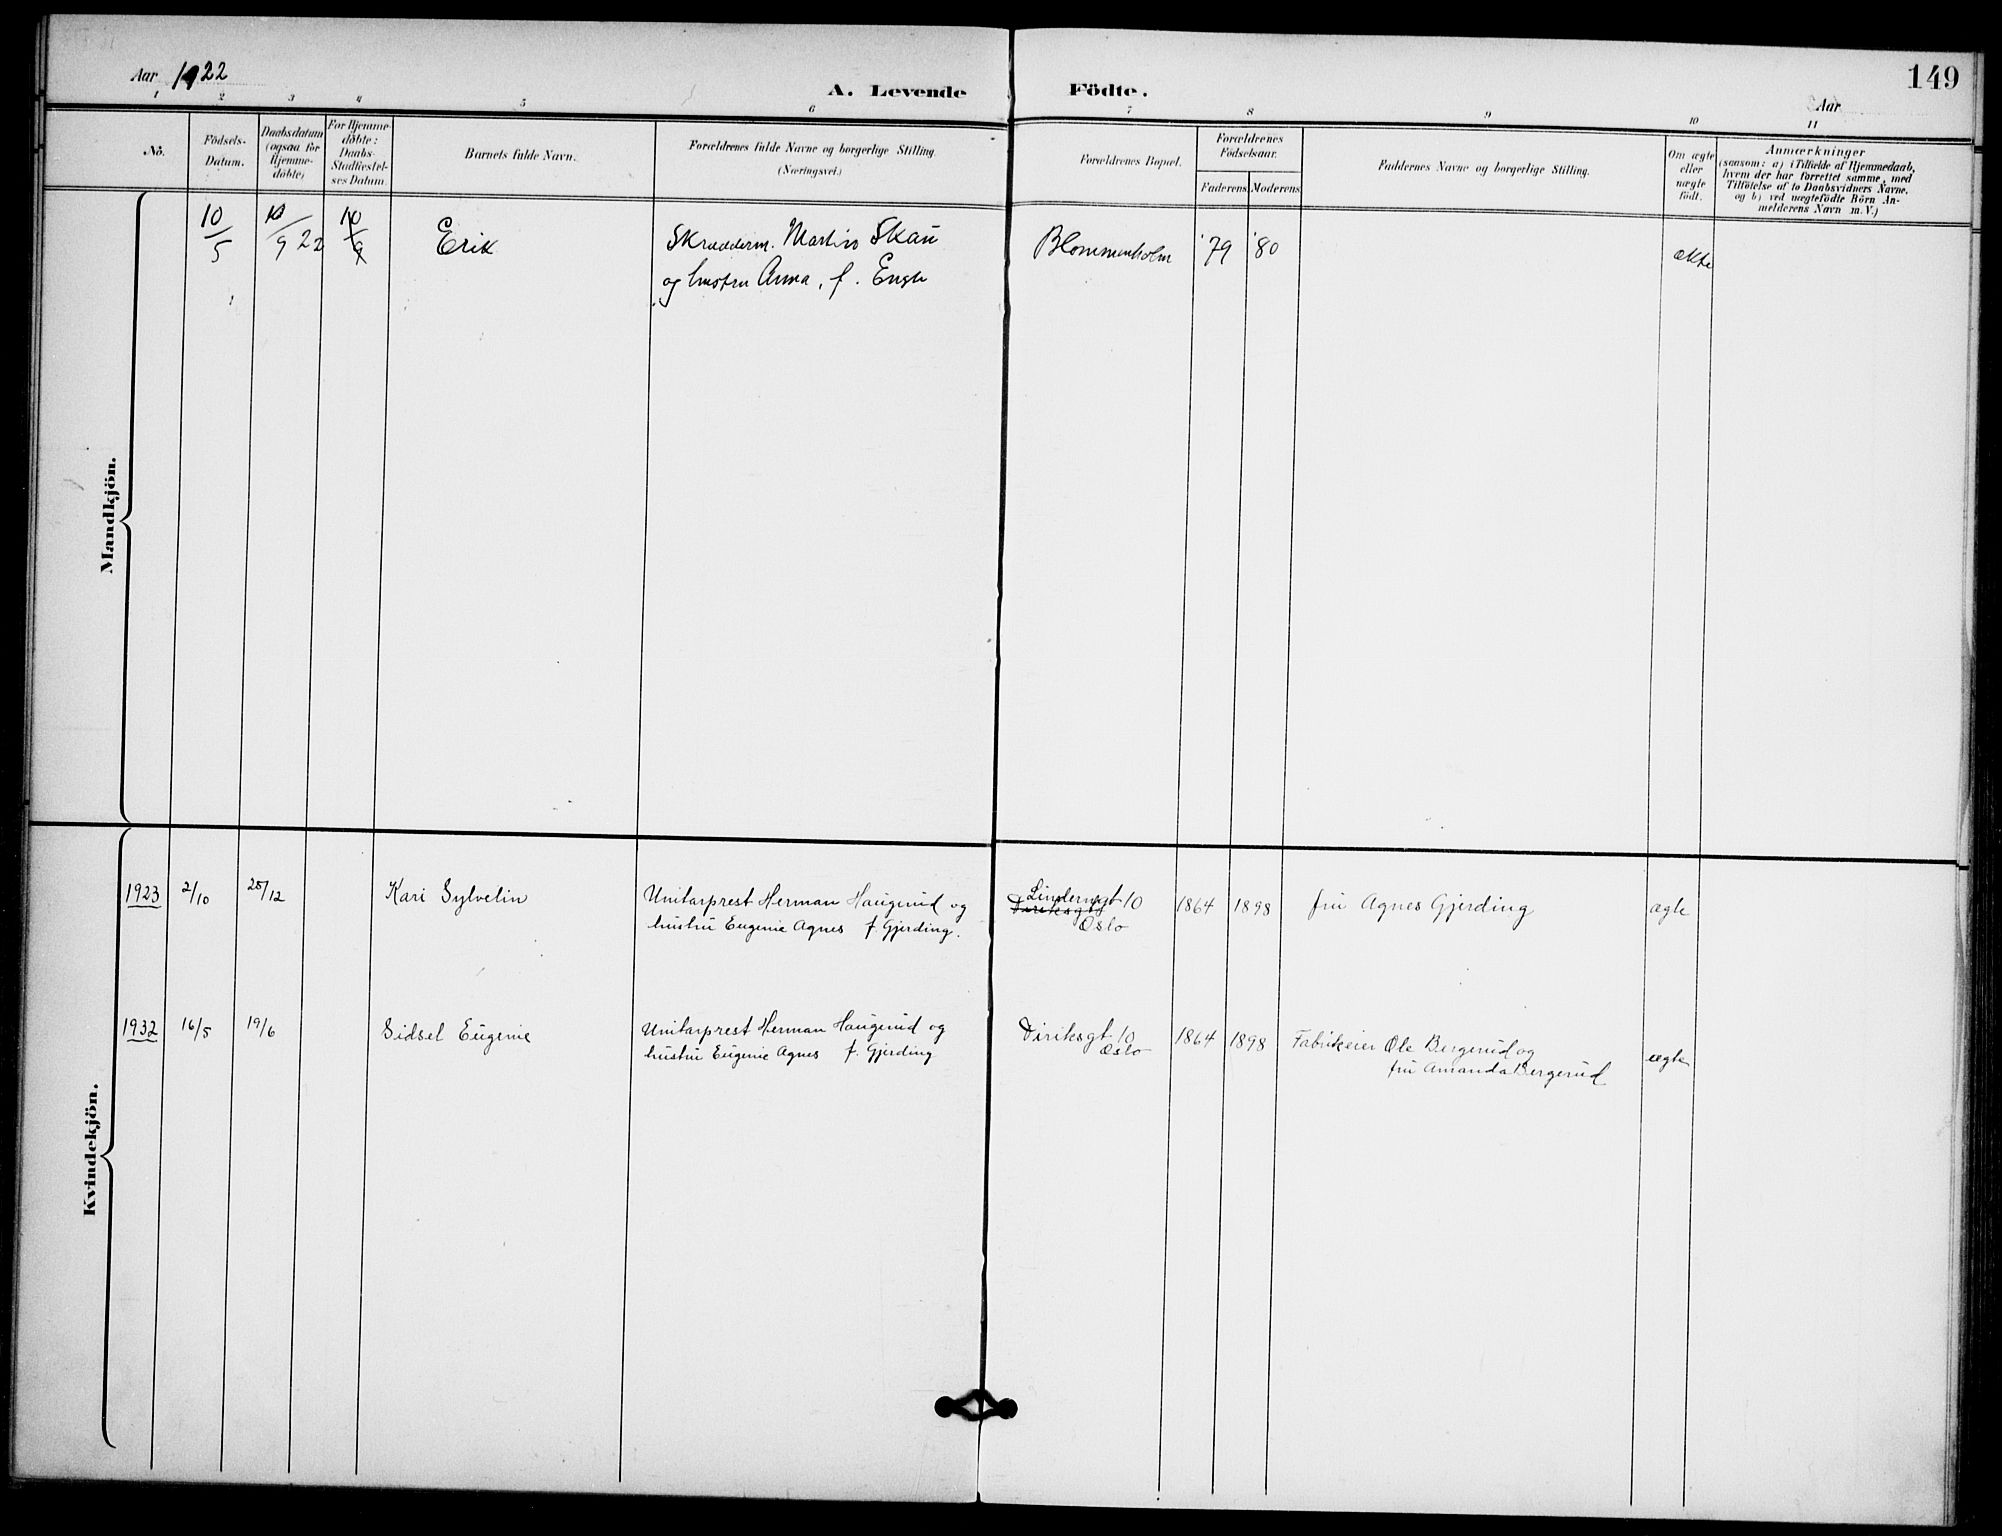 149
Aar 1922
A. Levende Födte.
Aar
1 2 3 4 5 6 7 8 9 10 11
No.
Födsels-
Datum.
Daabsdatum
(ogsaa for
Hjemme-
döbte)
For Hjemme-
döbte:
Daabs-
Stadfæstel-
ses Datum.
Barnets fulde Navn.
Forældrenes fulde Navne og borgerlige Stilling.
(Næringsvei.)
Forældrenes Bopæl.
Forældrenes
Födselsaar.
Faderens. Moderens.
Faddernes Navne og borgerlige Stilling.
Om ægte
eller
uægte
födt.
Anmærkninger
(saasom: a) i Tilfælde af Hjemmedaab,
hvem der har forrettet samme, med
Tilföielse af to Daabsvidners Navne.
og b) ved uægtefödte Börn An-
melderens Navn m. V.)
Mandkjön.
10/5 10/9 22 10/9 Erik Skrædderm. Martin Skau Blommenholm '79 '80 ekte
og hustru Anna, f.
Kvindekjön.
1923 2/10 /12 Kari Sylvelin Unitarprest Herman Haugerud og Lindernsgt 10 1864 1898 fru Agnes Gjerding ægte
hustru Eugenie Agnes f. Gjerding. Diriksgt Oslo
1932 16/5 19/6 Sidsel Eugenie Unitarprest Herman Haugerud og Diriksgt 10 1864 1898 Fabrikeier Ole Bergerud og ægte
hustru Eugenie Agnes f. Gjerding Oslo fru Amanda Bergerud